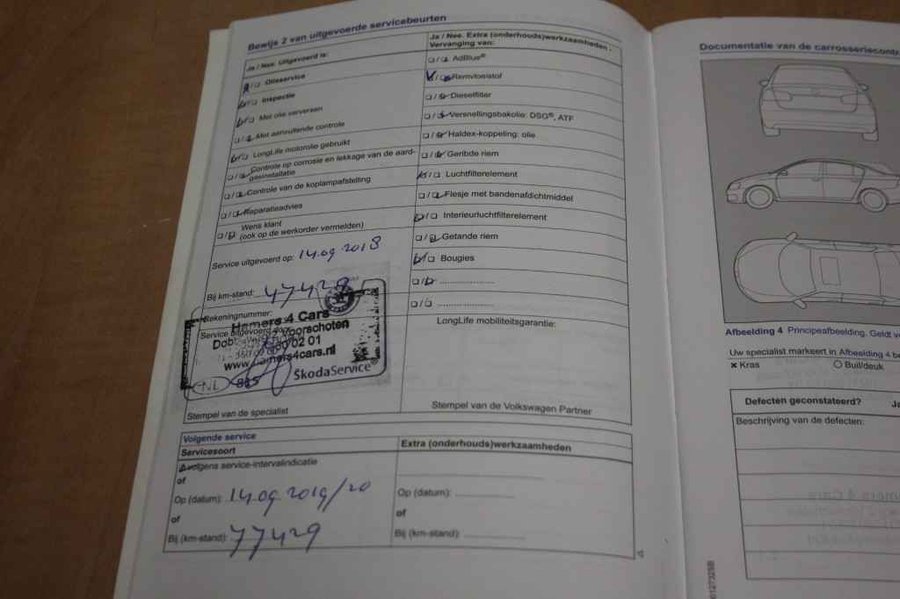 Bewijs 2 van uitgevoerde servicebeurten
Ja / Nee. Uitgevoerd is:
Olieservice
Inspectie
Met olie verversen
Met aanvullende controle
LongLife motorolie gebruikt
Controle op corrosie en lekkage van de aard-
gasinstallatie
Controle van de koplampafstelling
Reparatieadvies
Wens klant
(ook op de werkorder vermelden)
Service uitgevoerd op: 14.09 2018
Bij km-stand: 47429
Rekeningnummer:
Service uitgevoerd door:
Hamers 4 Cars
Voorschoten
02 01
www.hamers4cars.nl
NL 885
ŠkodaService®
Stempel van de specialist
Ja / Nee. Extra (onderhouds)werkzaamheden.
Vervanging van:
AdBlue®
Remvloeistof
Dieselfilter
Versnellingsbakolie: DSG®, ATF
Haldex-koppeling: olie
Geribde riem
Luchtfilterelement
Flesje met bandenafdichtmiddel
Interieurluchtfilterelement
Getande riem
Bougies
LongLife mobiliteitsgarantie:
Stempel van de Volkswagen Partner
Volgende service
Servicesoort
Volgens service-intervalindicatie
of
Op (datum): 14.09 2019/20
of
Bij (km-stand): 77429
Extra (onderhouds)werkzaamheden
Op (datum):
of
Bij (km-stand):
Documentatie van de carrosseriecontr
Afbeelding 4 Principeafbeelding. Geldt v
Uw specialist markeert in Afbeelding 4 be
× Kras
O Buil/deuk
Defecten geconstateerd? Ja
Beschrijving van de defecten: